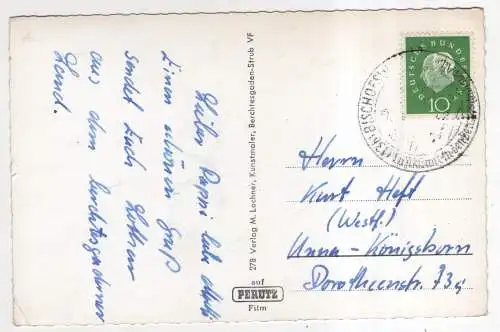 Lieber Papi liebe Mutti
Einen schönen Gruß
sendet Euch
aus dem Berchtesgadener
Land.
278 Verlag M. Lochner, Kunstmaler, Berchtesgaden-Strub VF
auf
PERUTZ
Film
DEUTSCHE BUNDESPOST
10
Herrn
Kurt Heft
(Westf.)
Unna-Königsborn
Dorotheenstr. 73a